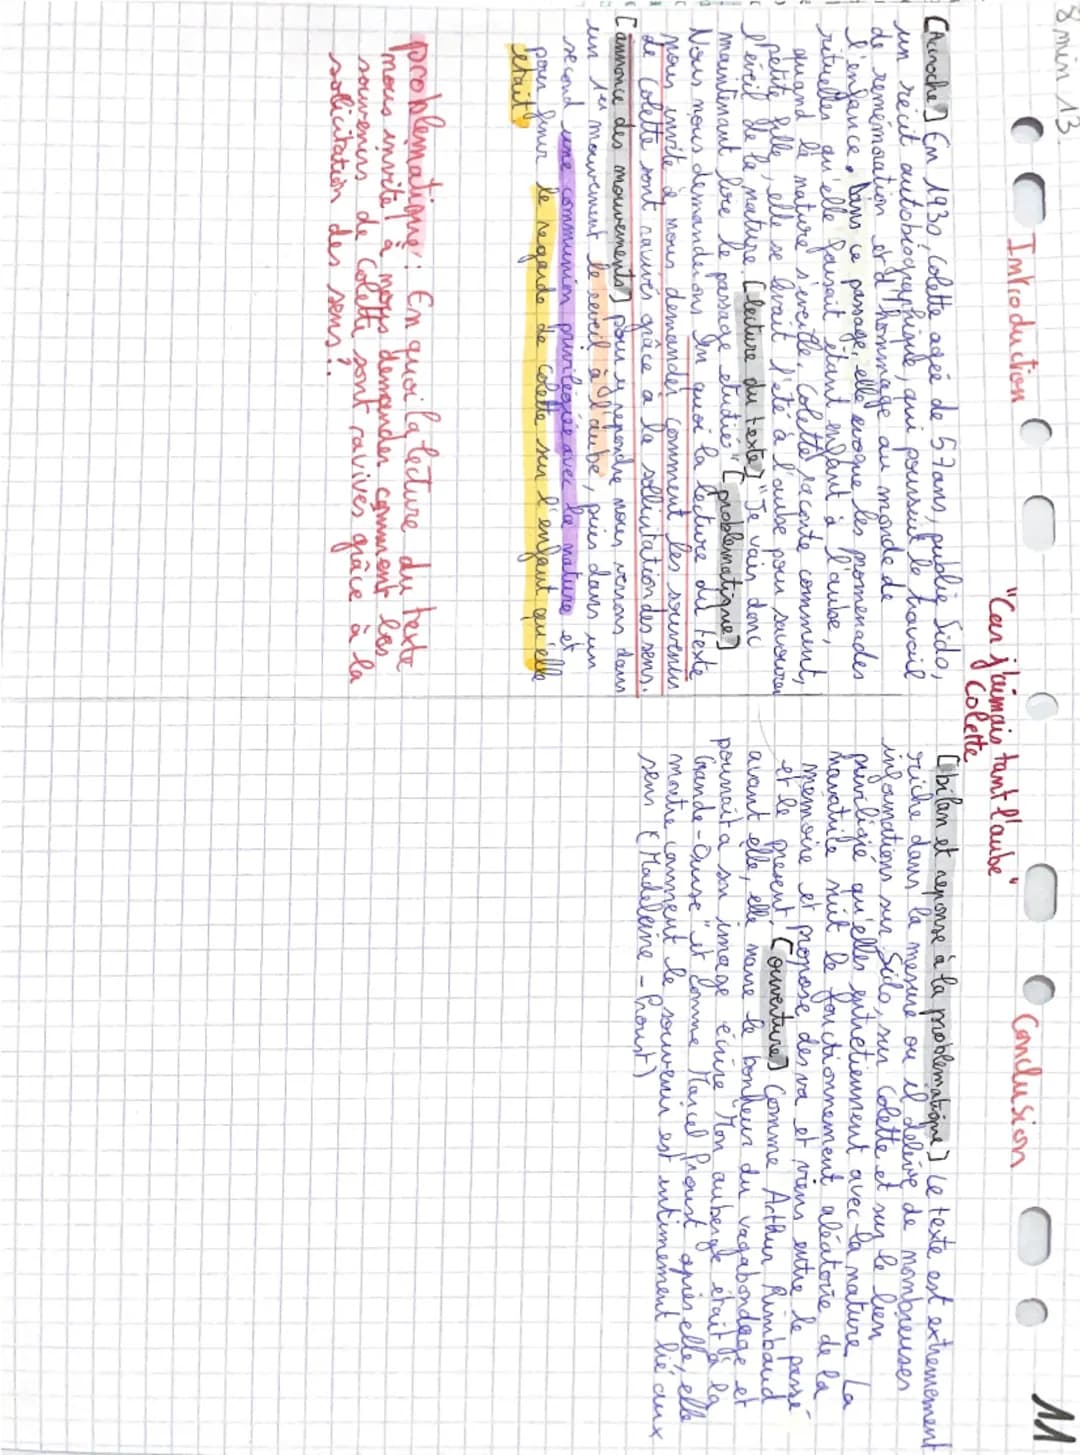 8 min 13.
11
"Car j'aimais tant l'aube"
Colette
Introduction
[Accroche] En 1930, Colette agée de 57ans, publie Sido,
un récit autobiographique, qui poursuit le travail
de remémoration et d'hommage au monde de
l'enfance. Dans ce passage, elle évoque les promenades
rituelles qu'elle faisait étant enfant à l'aube,
quand la nature s'éveille. Colette raconte comment,
petite fille, elle se levait l'été à l'aube pour savourer
l'éveil de la nature. [lecture du texte] "Je vais donc
maintenant lire le passage étudié" [problématique]
Nous nous demanderons En quoi la lecture du texte
nous invite à nous demander comment les souvenirs
de Colette sont ravivés grâce à la sollicitation des sens.
[annonce des mouvements] pour y repondre nous verrons dans
un 1er mouvement le reveil à l'aube, puis dans un
second une communion privilégiée avec la nature et
pour finir le regarde de Colette sur l'enfant qu'elle
était.
problématique : En quoi la lecture du texte
nous invite à nous demander comment les
souvenirs de Colette sont ravivés grâce à la
solicitation des sens?
Conclusion
[bilan et reponse à la problematique] Le texte est extremement
riche dans la mesure ou il délivre de nombreuses
informations sur Sido, sur Colette et sur le lien
privilégié qu'elles entretiennent avec la nature. La
narratrice suit le fonctionnement aléatoire de la
mémoire et propose des va et viens entre le passé
et le present. [ouverture] Comme Arthur Rimbaud
avant elle, elle narre le bonheur du vagabondage et
pourrait a son image écrire "Mon auberge était à la
Grande-Ourse" et comme Marcel Proust après elle, elle
montre comment le souvenir est intimement lié aux
sens (Madeleine - Proust)